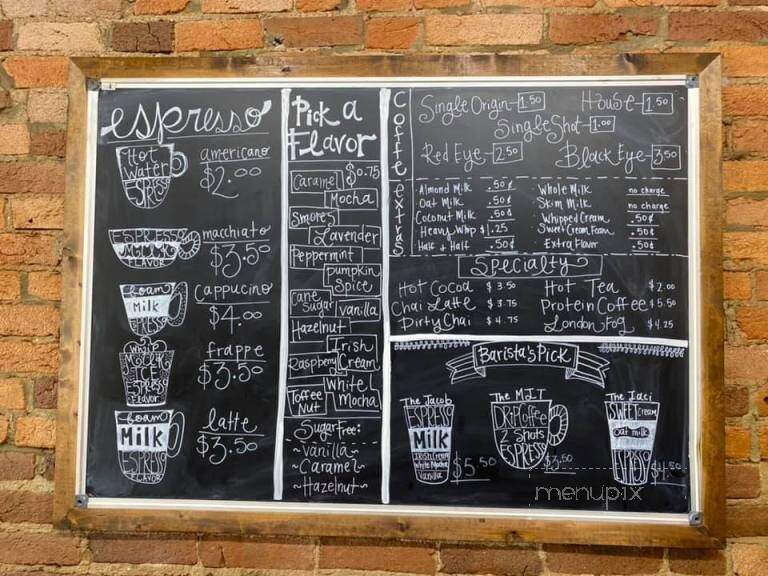 espresso
Hot
Water
ESPRESSO
americano
$2.00
ESPRESSO
MILK
FLAVOR
macchiato
$3.50
foam
Milk
ESPRESSO
cappucino
$4.00
whip
MILK
ICE
ESPRESSO
Flavor
frappe
$3.50
foam
Milk
ESPRESSO
FLAVOR
latte
$3.50
Pick a
Flavor
Caramel $0.75
Mocha
Smores
Lavender
Peppermint
Pumpkin
Spice
Cane
Sugar
Vanilla
Hazelnut
Irish
Cream
Raspberry
White
Mocha
Toffee
Nut
Sugar Free:
~Vanilla~
~Caramel~
~Hazelnut~
Coffee
Single Origin-1.50
House-1.50
Single Shot-1.00
Red Eye-2.50
Black Eye-3.50
extras
Almond Milk .50¢
Oat Milk .50¢
Coconut Milk .50¢
Heavy Whip $1.25
Half + Half .50¢
Whole Milk no charge
Skim Milk no charge
Whipped Cream .50¢
Sweet Cream Foam .50¢
Extra Flavor .50¢
Specialty
Hot Cocoa $3.50
Chai Latte $3.75
Dirty Chai $4.75
Hot Tea $2.00
Protein Coffee $5.50
London Fog $4.25
Barista's Pick
The Jacob
ESPRESSO
Milk
Irish Cream
White Mocha
Vanilla
$5.50
The MIT
DRIP Coffee
2 Shots
ESPRESSO
$3.50
The Jaci
SWEET Cream
Oat milk
ESPRESSO
$4.50
menupix